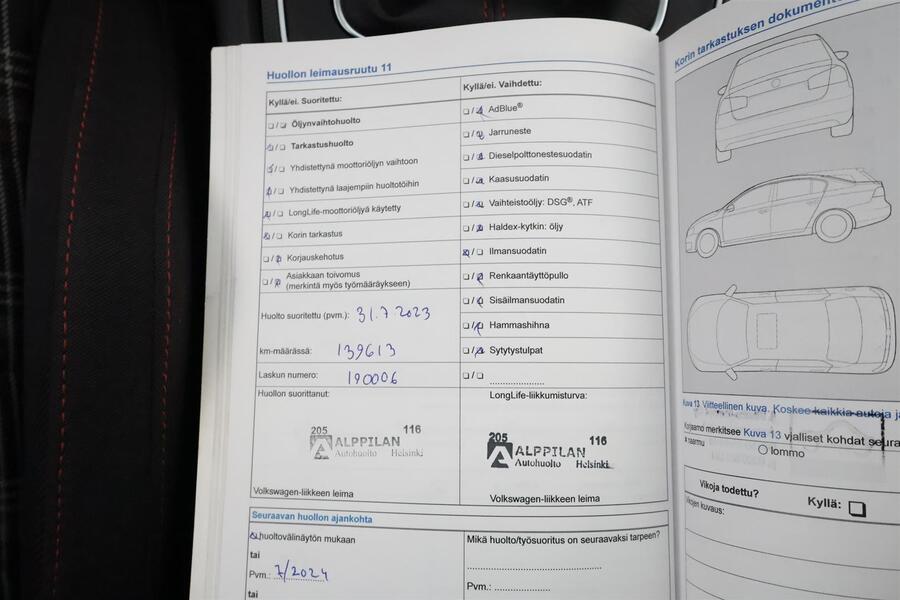 Huollon leimausruutu 11
Kyllä/ei. Suoritettu:
❑/❑ Öljynvaihtohuolto
❑/❑ Tarkastushuolto
❑/❑ Yhdistettynä moottoriöljyn vaihtoon
❑/❑ Yhdistettynä laajempiin huoltotöihin
❑/❑ LongLife-moottoriöljyä käytetty
❑/❑ Korin tarkastus
❑/❑ Korjauskehotus
❑/❑ Asiakkaan toivomus
(merkintä myös työmääräykseen)
Huolto suoritettu (pvm.): 31.7.2023
km-määrässä: 139613
Laskun numero: 190006
Huollon suorittanut:
205 116
ALPPILAN
Autohuolto Helsinki
Volkswagen-liikkeen leima
Kyllä/ei. Vaihdettu:
❑/❑ AdBlue®
❑/❑ Jarruneste
❑/❑ Dieselpolttonestesuodatin
❑/❑ Kaasusuodatin
❑/❑ Vaihteistoöljy: DSG®, ATF
❑/❑ Haldex-kytkin: öljy
❑/❑ Ilmansuodatin
❑/❑ Renkaantäyttöpullo
❑/❑ Sisäilmansuodatin
❑/❑ Hammashihna
❑/❑ Sytytystulpat
❑/❑ ......................
LongLife-liikkumisturva:
205 116
ALPPILAN
Autohuolto Helsinki
Volkswagen-liikkeen leima
Seuraavan huollon ajankohta
huoltovälinäytön mukaan
tai
Pvm.: 7/2024
tai
Mikä huolto/työsuoritus on seuraavaksi tarpeen?
Pvm.: ......................
Korin tarkastuksen
Kuva 13 Viitteellinen kuva. Koskee kaikkia autoja
merkitsee Kuva 13 vjalliset kohdat
lommo
Vikoja todettu?
Kyllä: ❑
kuvaus: